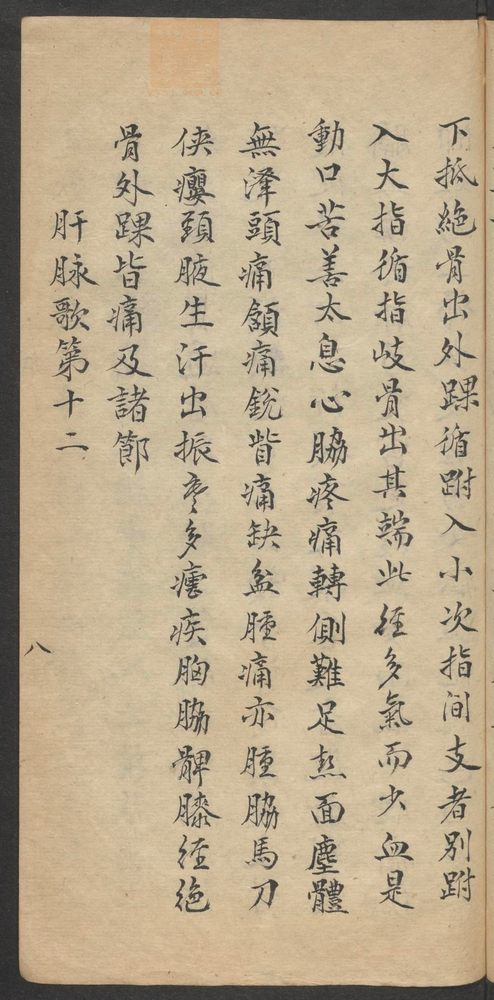 下抵絶骨出外踝循跗入小次指间支者别跗
入大指循指岐骨出其端此徑多氣而少血是
動口苦善太息心脇疼痛轉側難足热面塵體
無澤頭痛頷痛銳眥痛缺盆腫痛亦腫脇馬刀
侠癭頸腋生汗出振寒多瘧疾胸脇髀膝徑绝
骨外踝皆痛及諸節
肝脉歌第十二
八